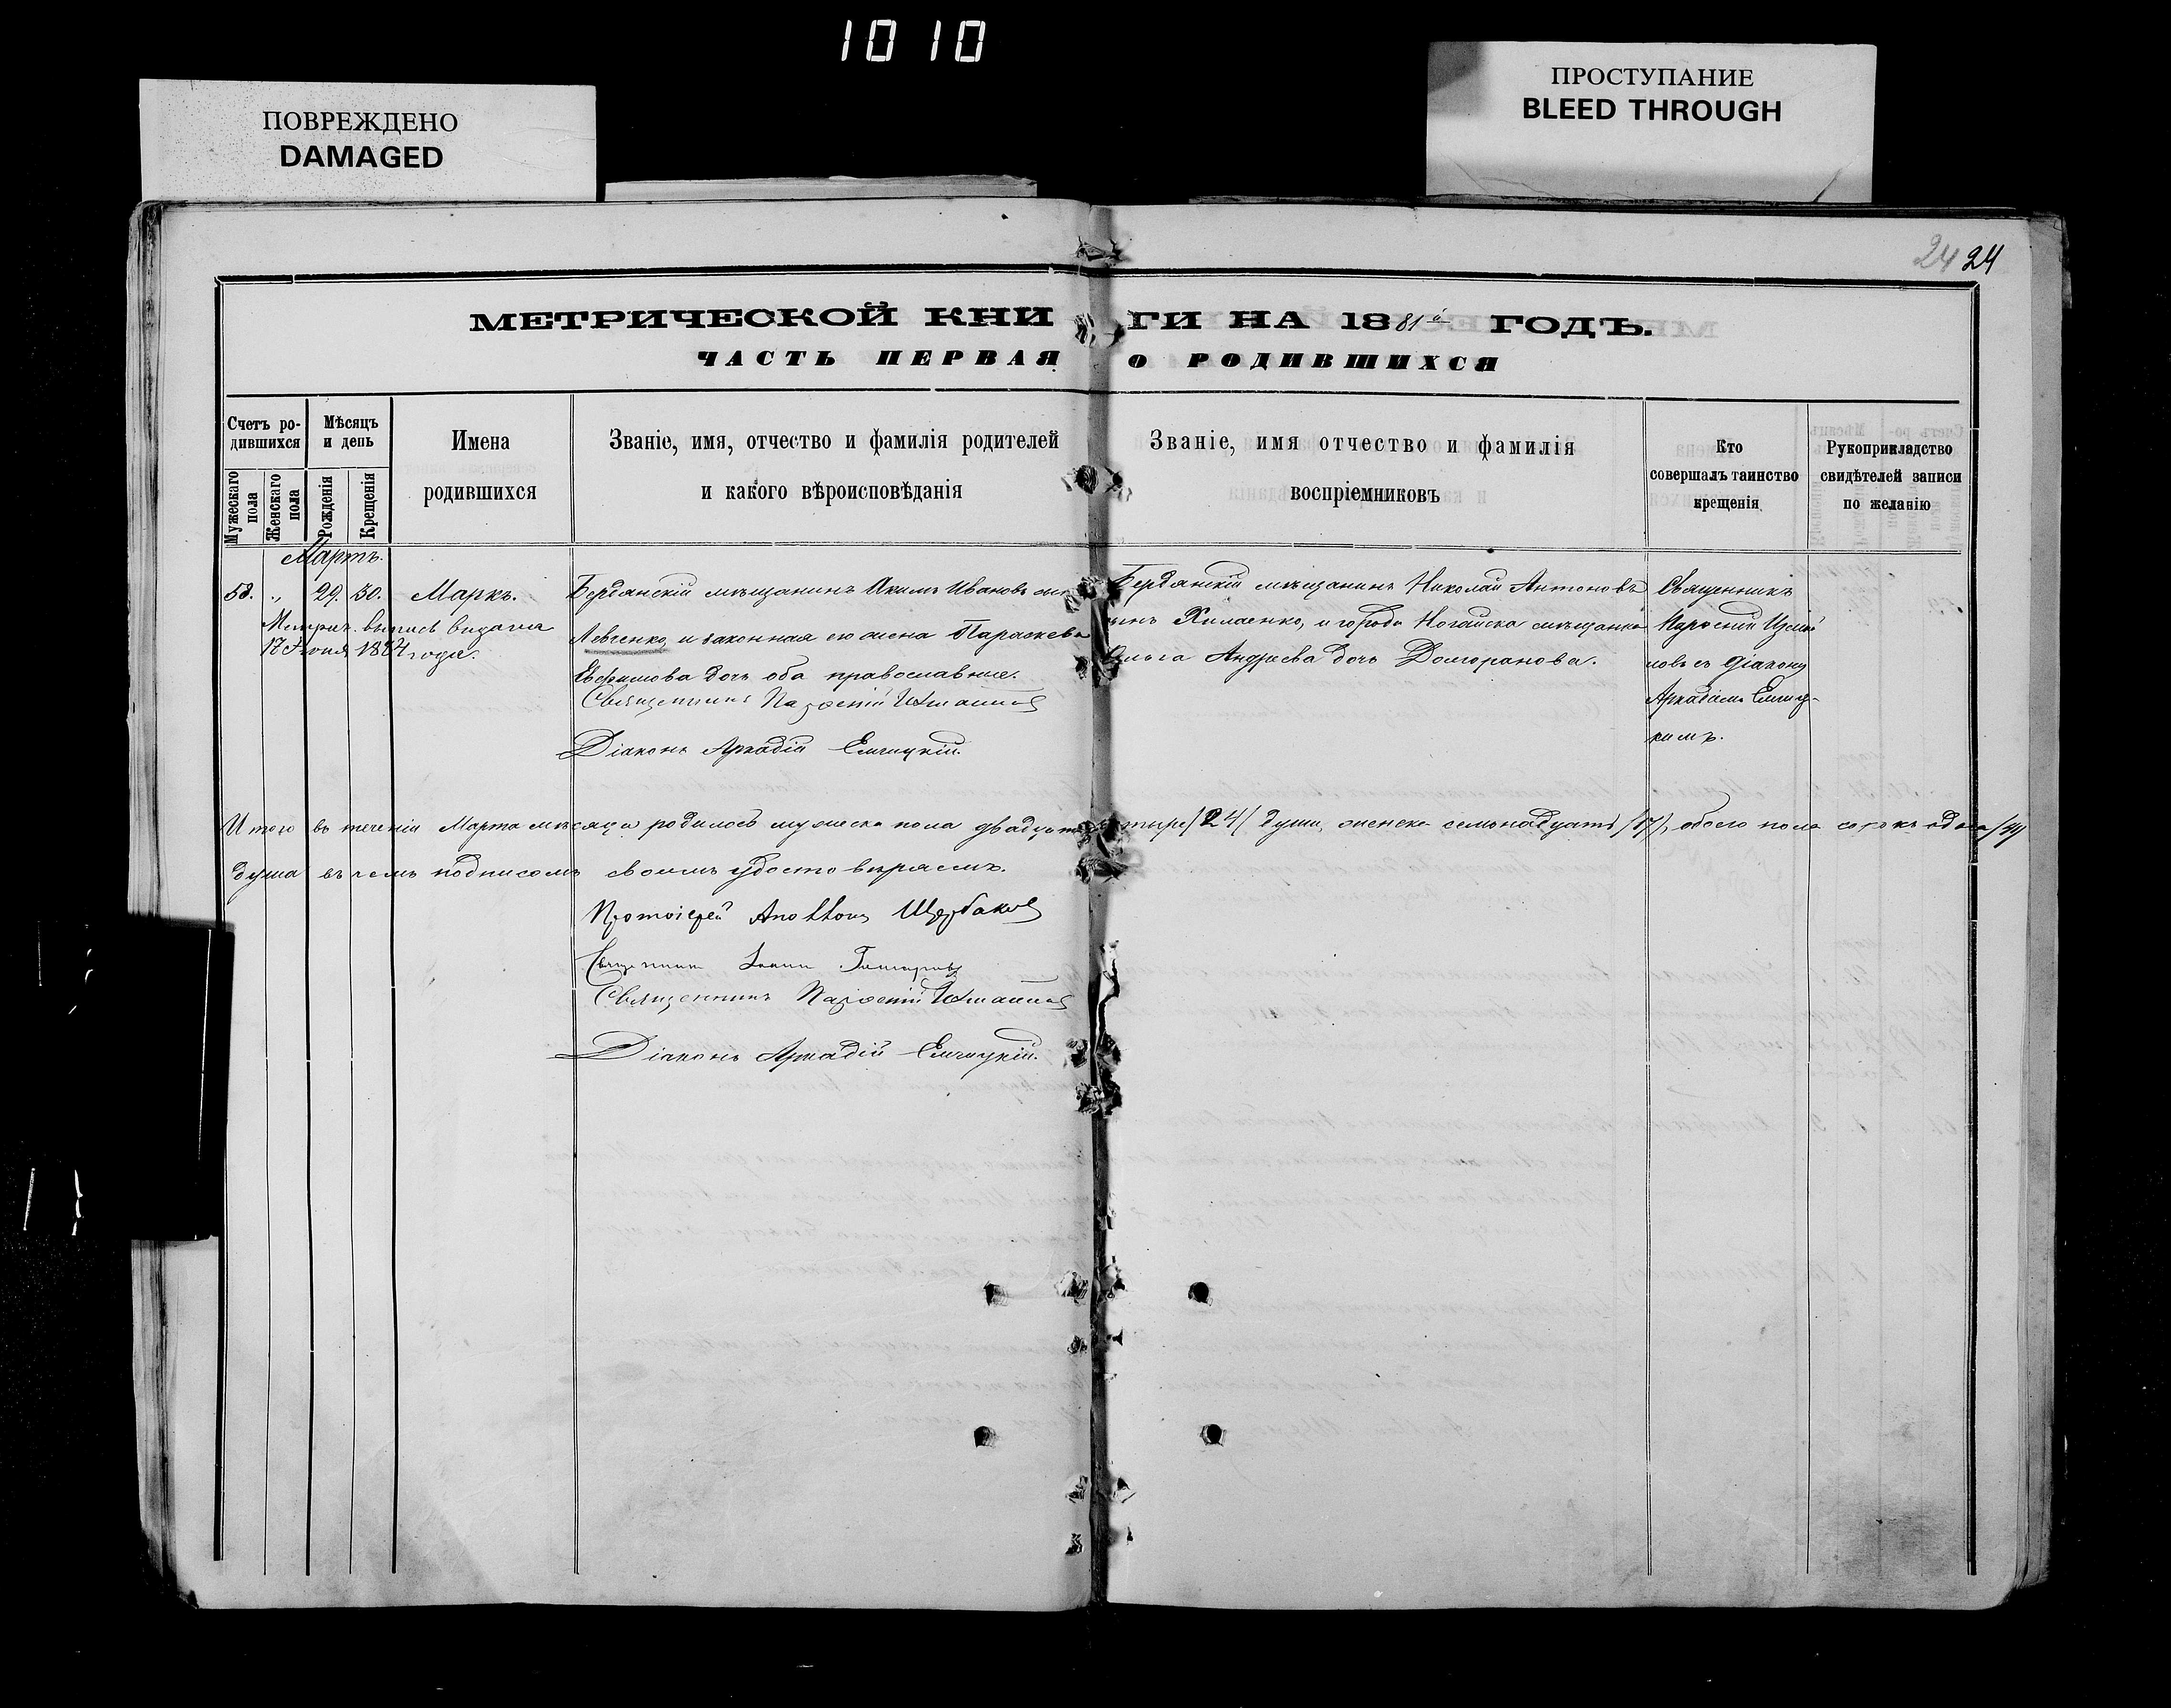 1010
ПОВРЕЖДЕНО
DAMAGED
ПРОСТУПАНИЕ
BLEED THROUGH
24 24
МЕТРИЧЕСКОЙ КНИГИ НА 1881й ГОДЪ.
ЧАСТЬ ПЕРВАЯ О РОДИВШИХСЯ
Счетъ ро-
дившихся
Мужескаго
пола
Женскаго
пола
Мѣсяцъ
и день
Рожденія
Крещенія
Имена
родившихся
Званіе, имя, отчество и фамилія родителей
и какого вѣроисповѣданія
Званіе, имя отчество и фамилія
воспріемниковъ
Кто
совершалъ таинство
крещенія
Рукоприкладство
свидѣтелей записи
по желанію
Мартъ.
58. „ 29. 30. Маркъ.
Метрич. выпись выдана
17 Іюня года.
Бердянскій мѣщанинъ Акимъ Ивановъ
Левченко, и законная его жена Параскева
Евфимова дочь оба православные.
Священникъ
Діаконъ Аркадій
Бердянскій мѣщанинъ Николай Антоновъ
и города Ногайска мѣщанка
Ольга Андреева дочь
Священникъ
новъ съ діакономъ
Аркадіемъ
кимъ.
Итого въ теченіи Марта мѣсяца родилось мужеска пола двадцать четыре /24/ души, женска семьнадцать /17/, обоего пола сорокъ одна /41/
душа въ чемъ подписомъ своимъ удостовѣряемъ.
Протоіерей Щербаковъ
Священникъ
Священникъ
Діаконъ Аркадій